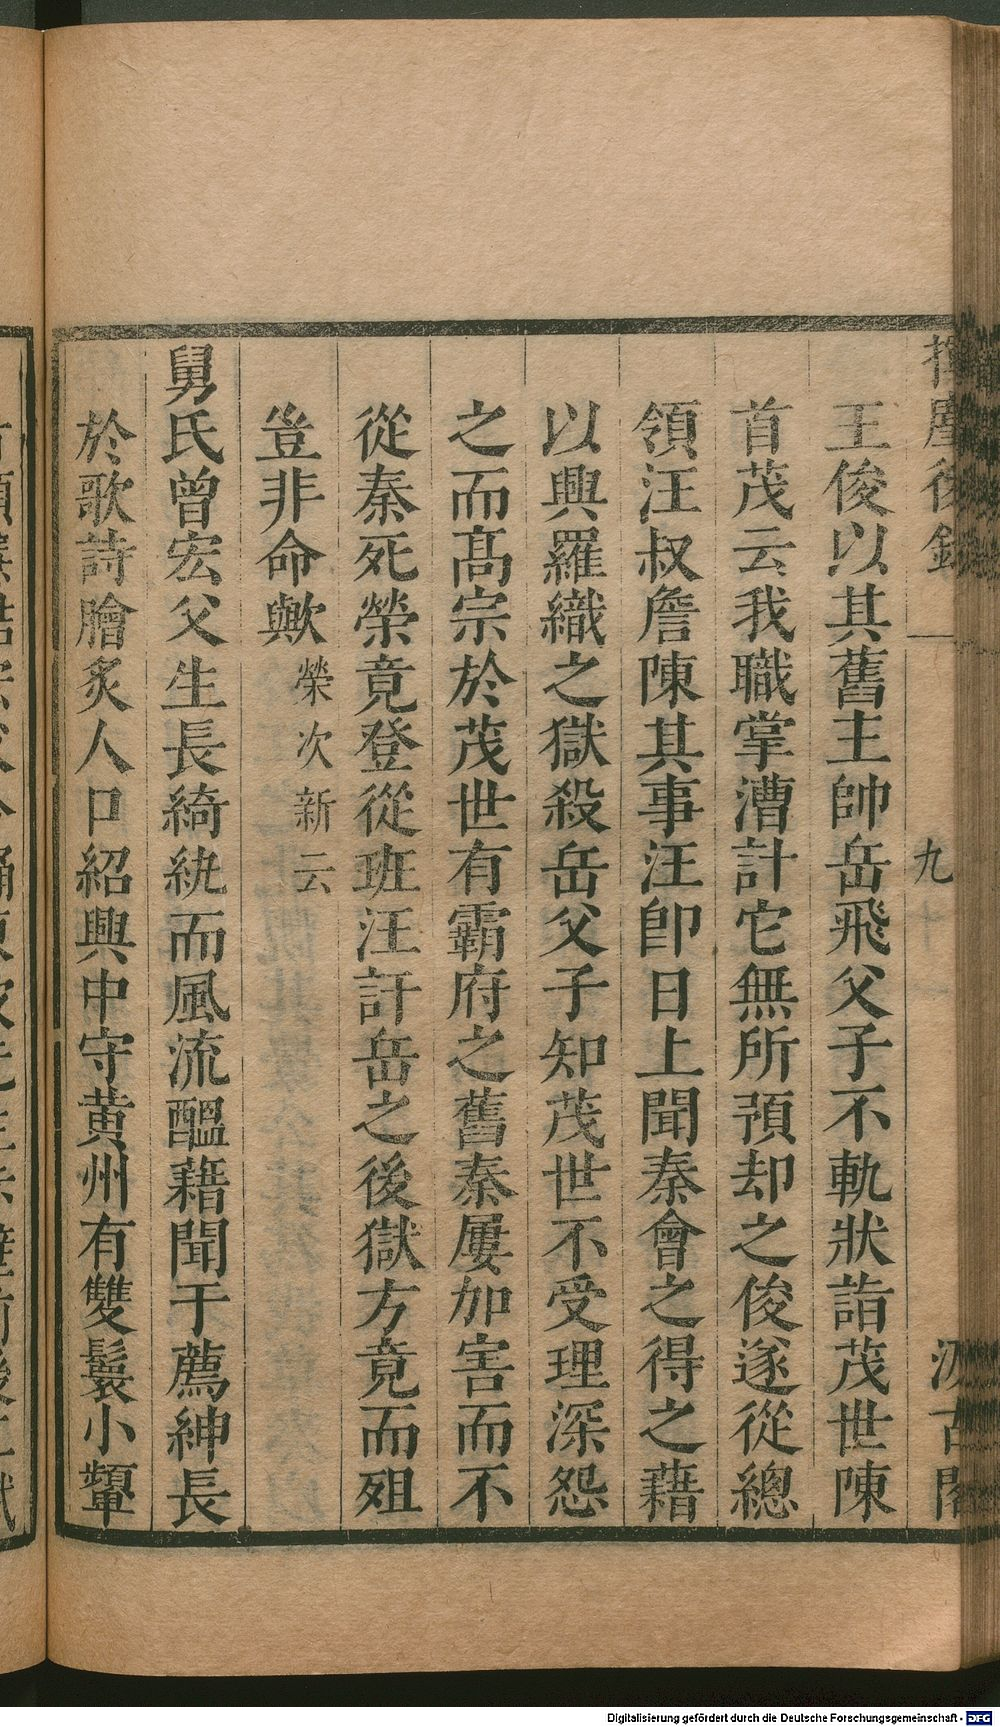 揮麈後錄
九
汲古閣
王俊以其舊主帥岳飛父子不軌狀詣茂世陳
首茂云我職掌漕計它無所預却之俊遂從總
領汪叔詹陳其事汪卽日上聞秦會之得之藉
以興羅織之獄殺岳父子知茂世不受理深怨
之而髙宗於茂世有霸府之舊秦屢加害而不
從秦死榮竟登從班汪訐岳之後獄方竟而殂
豈非命歟榮次新云
舅氏曾宏父生長綺紈而風流醞藉聞于薦紳長
於歌詩膾炙人口紹興中守黄州有雙鬟小顰
Digitalisierung gefördert durch die Deutsche Forschungsgemeinschaft - DFG